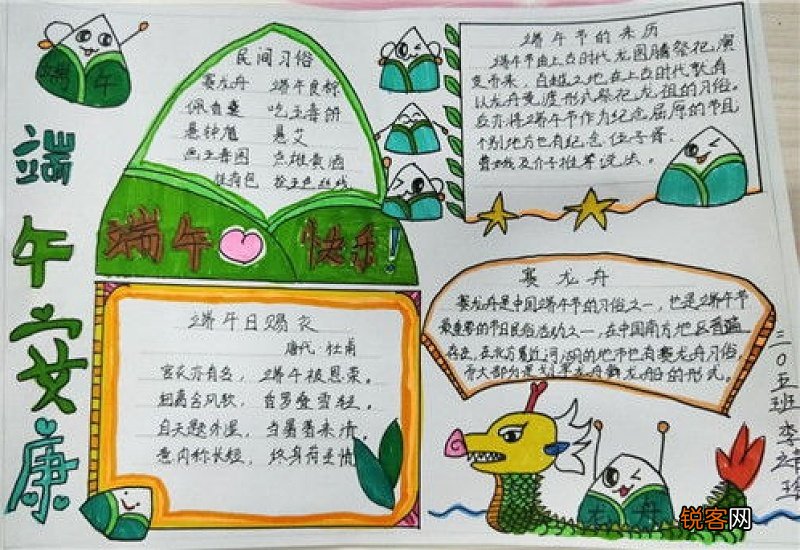 端午安康
端午
民间习俗
赛龙舟 端午食粽
佩香囊 吃五毒饼
悬钟馗 悬艾
画五毒图 点雄黄酒
挂荷包 拴五色丝线
端午快乐!
端午节的来历
端午节由上古时代龙图腾祭祀演
变而来。百越之地在上古时代就有
以龙舟竞渡形式祭祀龙祖的习俗。
后亦将端午节作为纪念屈原的节日
个别地方也有纪念伍子胥、
曹娥及介子推等说法。
端午日赐衣
唐代 杜甫
宫衣亦有名,端午被恩荣。
细葛含风软,香罗叠雪轻。
自天题处湿,当暑著来清。
意内称长短,终身荷圣情
赛龙舟
赛龙舟是中国端午节的习俗之一,也是端午节
最重要的节日民俗活动之一,在中国南方地区普遍
存在,在北方靠近河湖的地市也有赛龙舟习俗,
而大部分是划旱龙舟舞龙船的形式。
龙舟
二〇五班 李
锐客网